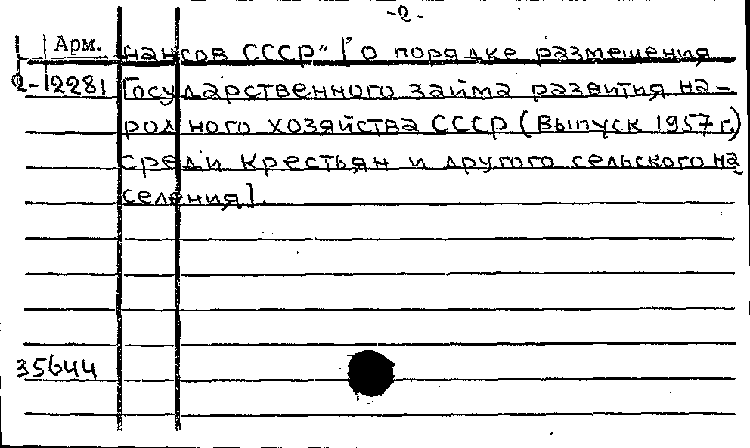 -2-
Арм. нансов СССР" [о порядке размещения
2-12281 Государственного займа развития на-
родного хозяйства СССР (Выпуск 1957 г.)
среди крестьян и другого сельского на
селения].
35644